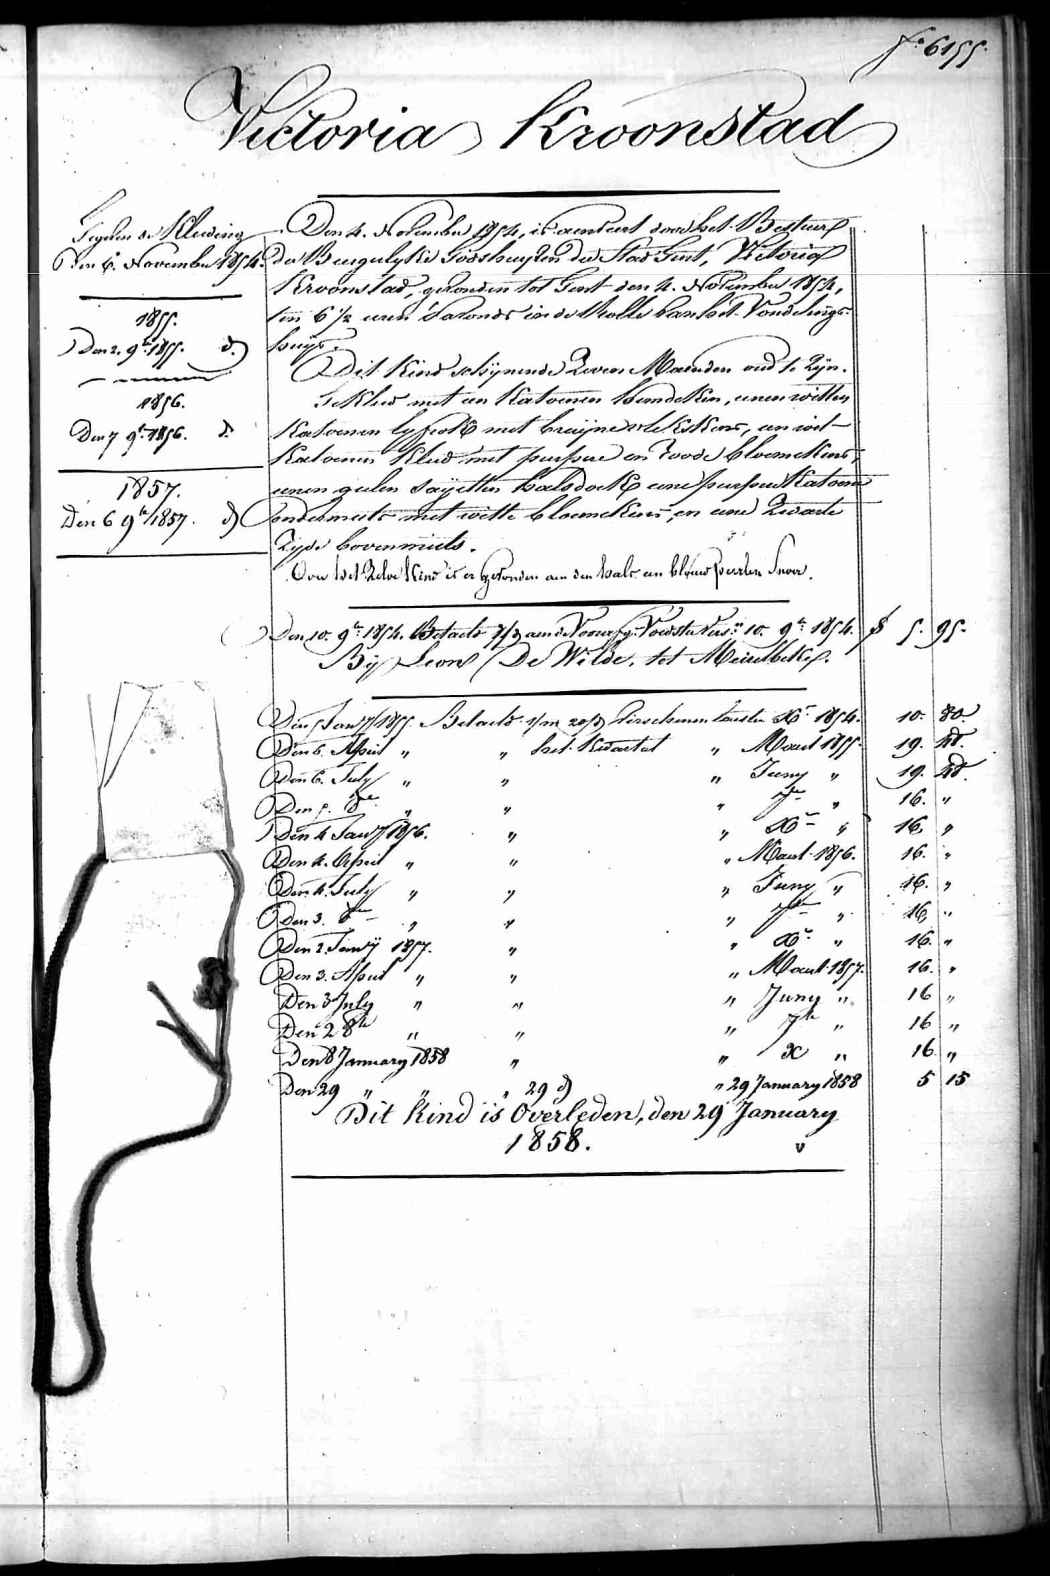 f.o 6155.
Victoria Kroonstad
Gegeven de Kleeding
Den 6. November 1854.
1855.
Den 2. 9br 1855. d.
1856.
Den 7 9br 1856. d.
1857.
Den 6 9br 1857. d
Den 4. November 1854, is aenveert door het Bestuur
der Burgerlyke Godshuyzen der Stad Gent, Victoria
Kroonstad, gevonden tot Gent den 4. November 1854,
ten 6 1/2 uren s'avonds in de Rolle van het Vondelings-
huys.
Dit Kind schynende Zeven Maenden oud te Zyn.
Gekleed met een Katoenen hemdeken, eenen witten
Katoenen lyfrok met bruyne vlekskens, een wit
Katoenen Kleed met purpere en roode bloemekens,
eenen geelen sayetten halsdoek eene purpere Katoene
ondermuts met witte bloemekens, en eene Zwarte
Zyde bovenmuts.
Over het Zelve Kind is er gevonden aen den hals een blauw peerlen snoer.
Den 10. 9br 1854. Betaelt aen de Voedster 10. 9br 1854. f 5. 95.
By Leon De Wilde, tot Meirelbeke.
Den 5 Jany 1855. Betaelt Xr 1854. 10. 80
Den 6. April " " het Kwartael " Maert 1855. 19. 40.
Den 6. July " " " Juny " 19. 40.
Den 5. 8br " " " 7br " 16. "
Den 4 Jany 1856. " " Xr " 16. "
Den 4. April " " " Maert 1856. 16. "
Den 4. July " " " Juny " 16. "
Den 3. 8br " " " 7br " 16. "
Den 2. Jany 1857. " " Xr " 16. "
Den 3. April " " " Maert 1857. 16. "
Den 3 July " " " Juny " 16 "
Den 2 8br " " " 7br " 16 "
Den 8 January 1858 " " X " 16 "
Den 29 " " " 29 d " 29 January 1858 5 15
Dit Kind is Overleden, den 29 January
1858.